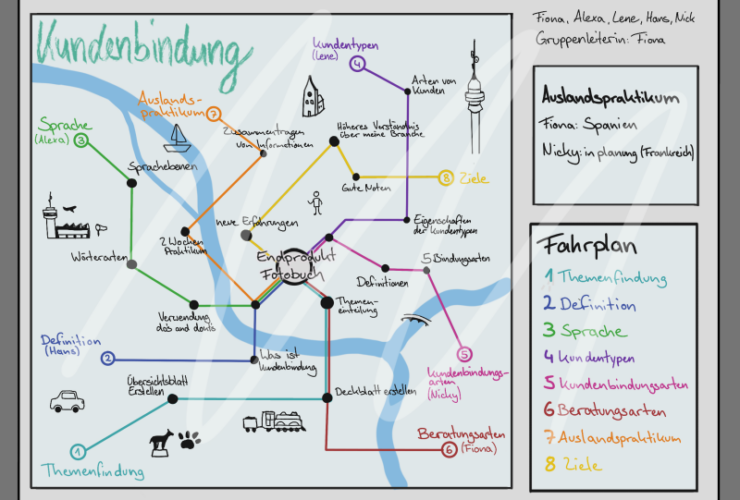 Kundenbindung
Fiona, Alexa, Lene, Hans, Nick
Gruppenleiterin: Fiona
Kundentypen
(Lene)
4
Arten von
Kunden
Auslands-
praktikum
7
Zusammentragen
von Informationen
Höheres Verständnis
über meine Branche
Sprache
(Alexa)
3
Sprachebenen
Gute Noten
8 Ziele
neue Erfahrungen
Eigenschaften
der Kundentypen
2 Wochen
Praktikum
Wörterarten
Endprodukt
Fotobuch
5 Bindungsarten
Definitionen
Verwendung
do's and dont's
Themen-
einteilung
Definition
(Hans)
2
Was ist
Kundenbindung
5
Kundenbindungs-
arten
(Nicky)
Übersichtsblatt
Erstellen
Deckblatt erstellen
1
Themenfindung
Beratungsarten
(Fiona)
6
Auslandspraktikum
Fiona: Spanien
Nicky: in planung (Frankreich)
Fahrplan
1 Themenfindung
2 Definition
3 Sprache
4 Kundentypen
5 Kundenbindungsarten
6 Beratungsarten
7 Auslandspraktikum
8 Ziele